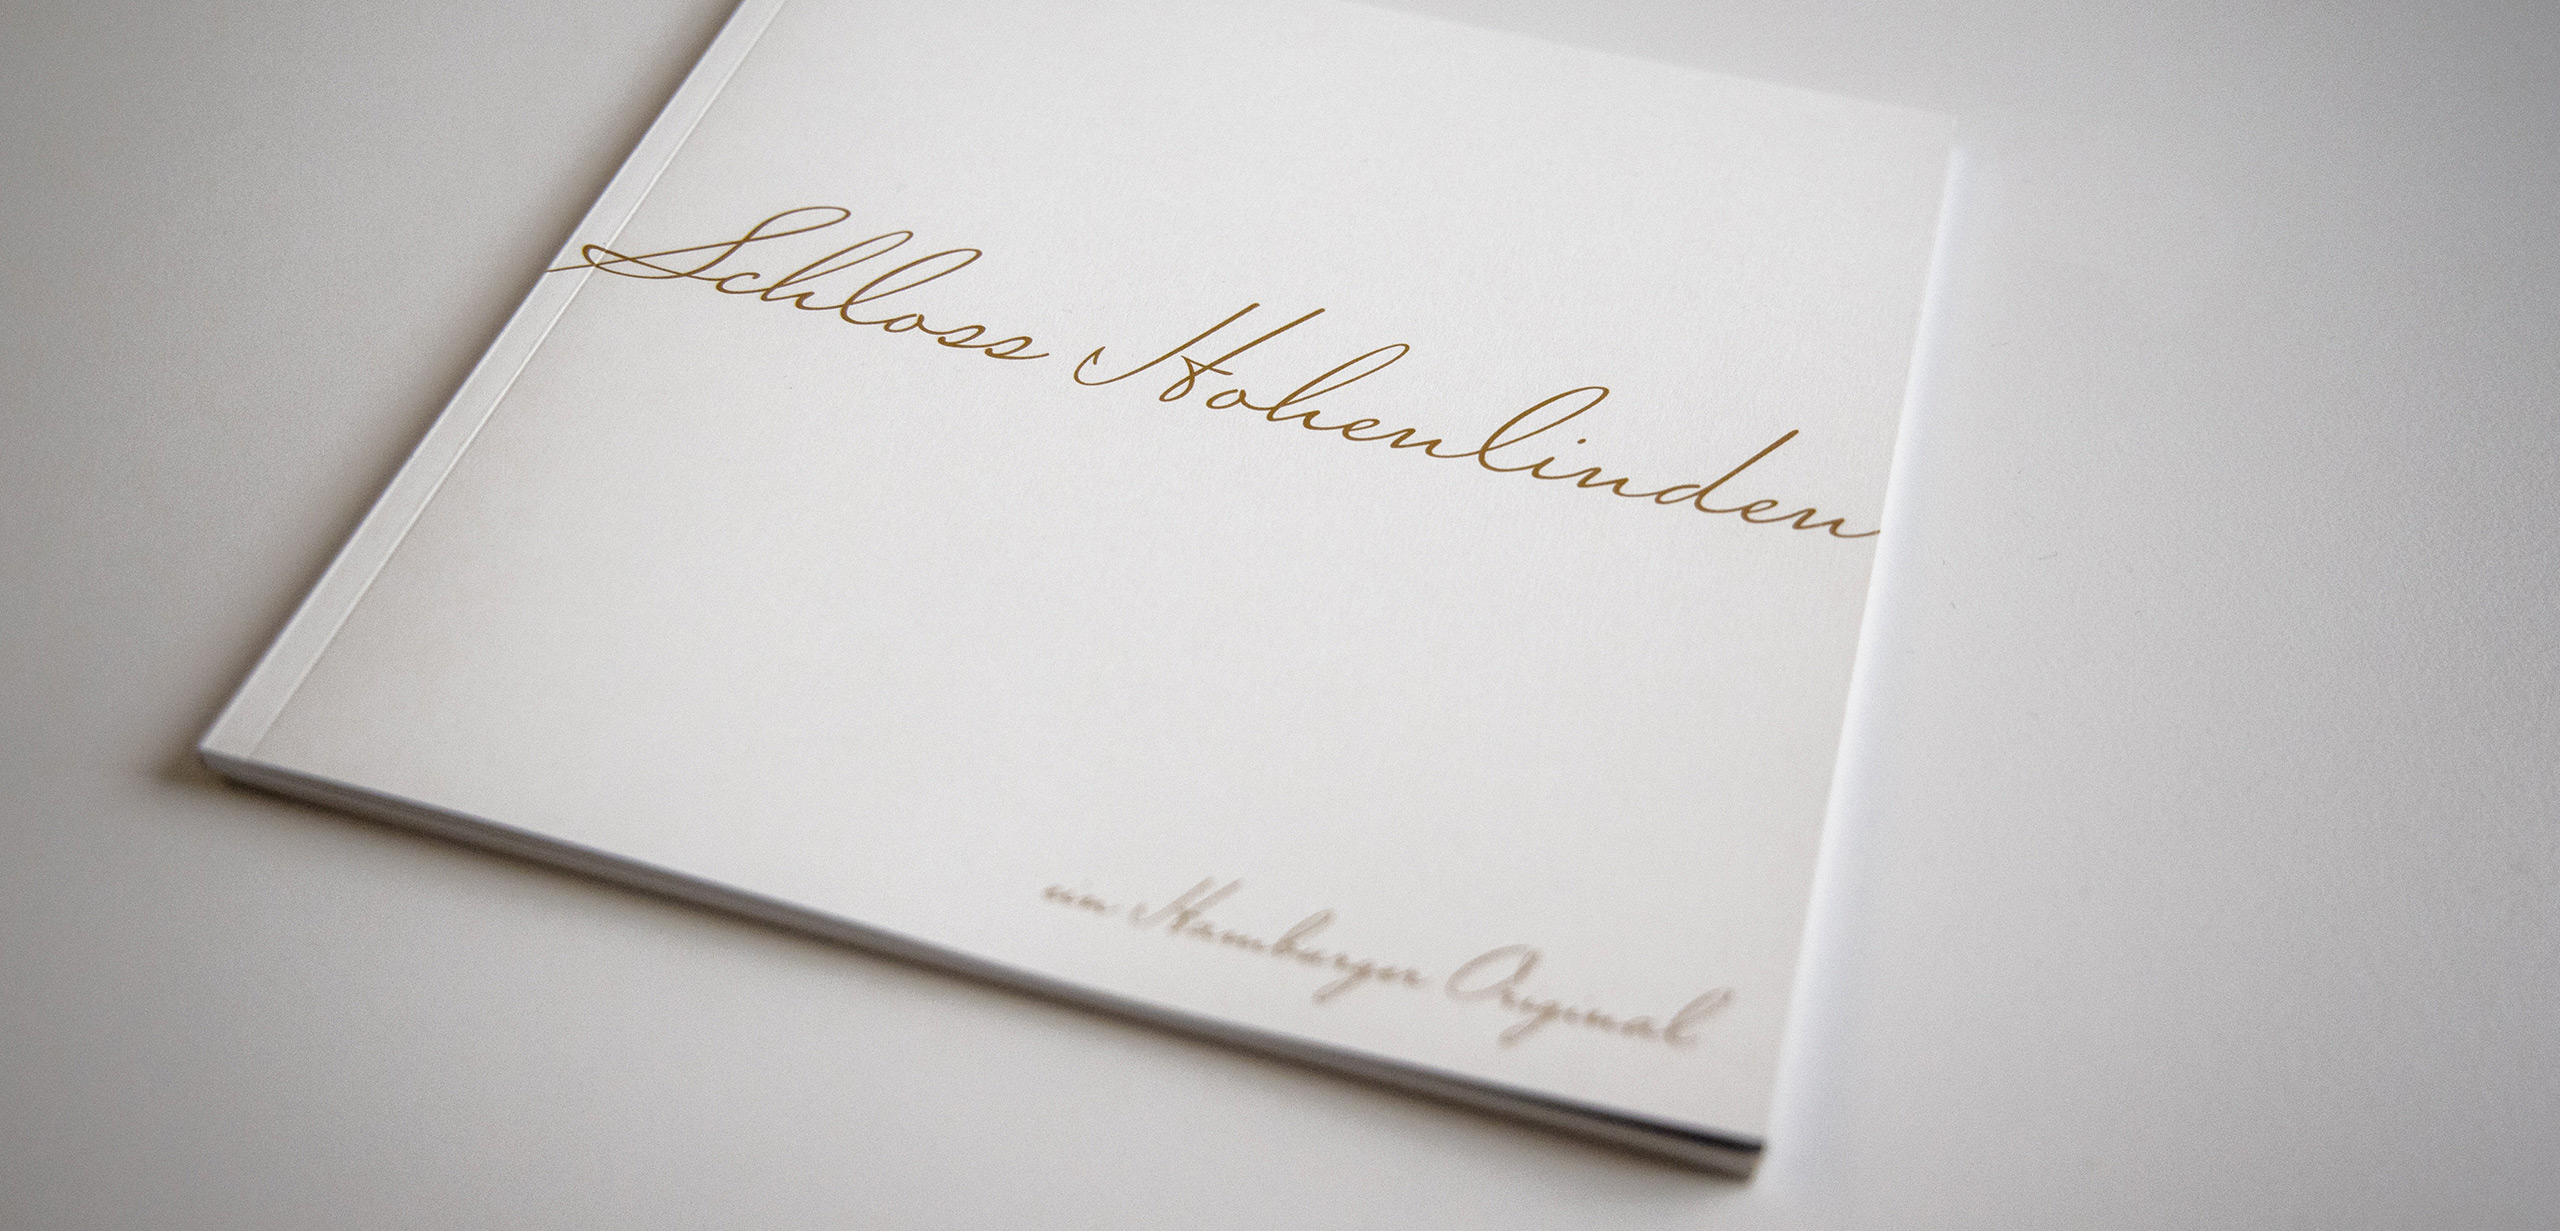 Schloss Hohenlinden
ein Hamburger Original